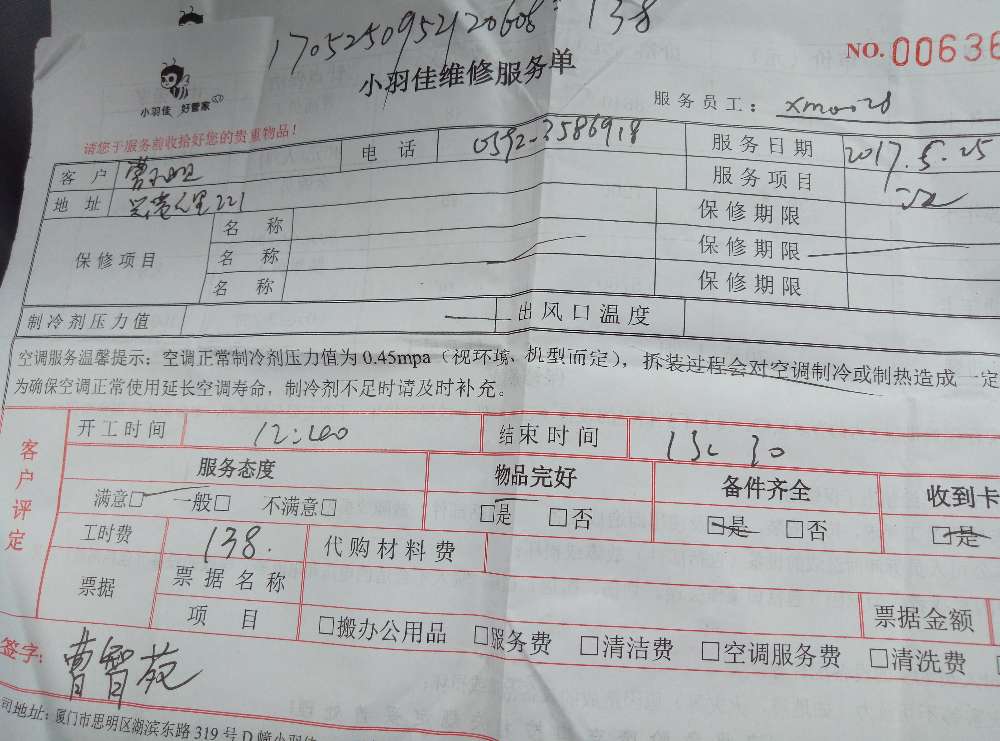 170525095212060​8 138
小羽佳维修服务单
NO. 00636
小羽佳 好管家
服务员工: xm0028
请您于服务前收拾好您的贵重物品!
客户 曹 电话 0592-3586918 服务日期 2017.5.25
地址 221 服务项目
保修项目 名称 保修期限
名称 保修期限
名称 保修期限
制冷剂压力值 出风口温度
空调服务温馨提示: 空调正常制冷剂压力值为0.45mpa(视环境、机型而定), 拆装过程会对空调制冷或制热造成一定
为确保空调正常使用延长空调寿命, 制冷剂不足时请及时补充。
客户评定 开工时间 结束时间
服务态度 物品完好 备件齐全 收到卡
满意□ 一般□ 不满意□ □是 □否 □是 □否 □是
工时费 138. 代购材料费
票据 票据名称
项目 □搬办公用品 □服务费 □清洁费 □空调服务费 □清洗费 票据金额
签字: 曹智苑
司地址: 厦门市思明区湖滨东路319号D幢小羽佳